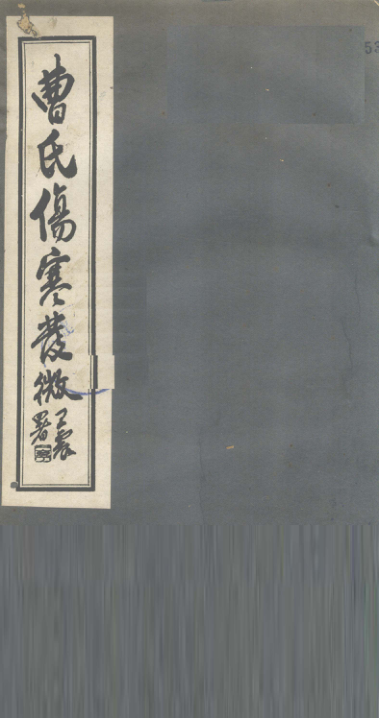 曹氏傷寒發微
王震
署
53